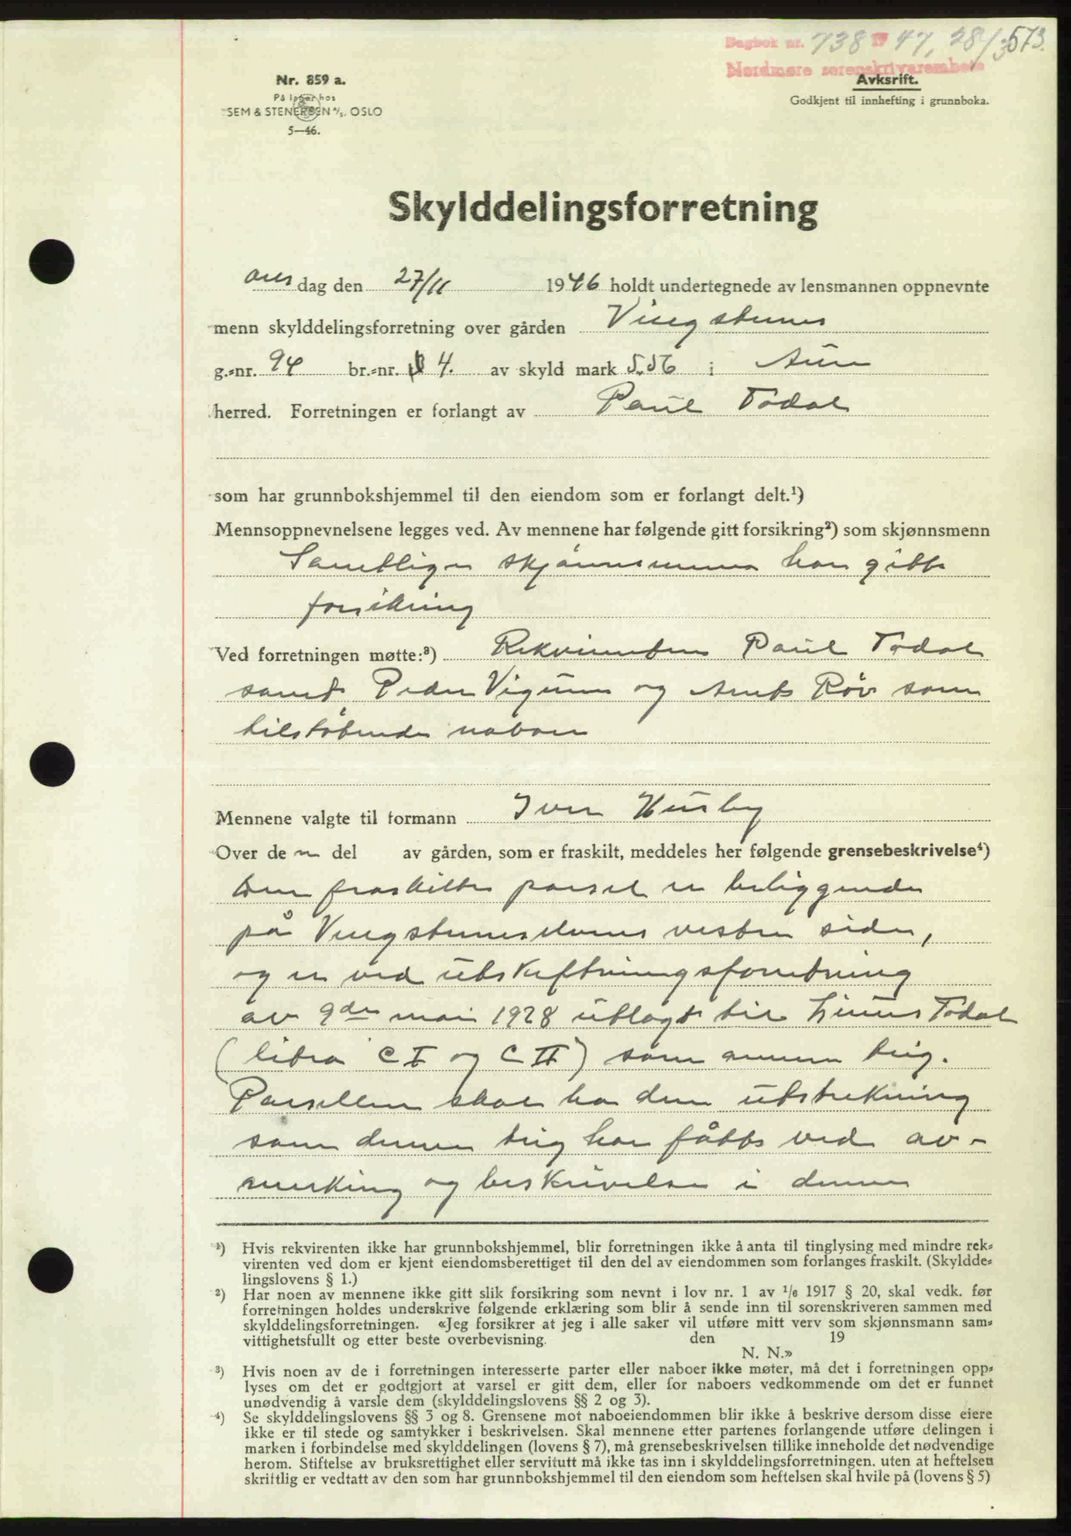 Dagbok nr. 738 19 47, 28/3 573.
Nordmøre sorenskrivarembete
Nr. 859 a.
På lager hos
SEM & STENERSEN A/S, OSLO
5—46.
Avksrift.
Godkjent til innhefting i grunnboka.
Skylddelingsforretning
ons dag den 27/11 1946 holdt undertegnede av lensmannen oppnevnte
menn skylddelingsforretning over gården Vingstunes
g.-nr. 94 br.-nr. 4. av skyld mark 5.56 i Aure
herred. Forretningen er forlangt av Paul Todal
som har grunnbokshjemmel til den eiendom som er forlangt delt.¹)
Mennsoppnevnelsene legges ved. Av mennene har følgende gitt forsikring²) som skjønnsmenn
Samtlige skjønnsmenn har gitt
forsikring
Ved forretningen møtte:³) Rekvirenten Paul Todal
samt Peder Vigunn og Arnt Røv som
tilstøtende naboer
Mennene valgte til formann Iver Husby
Over de n del av gården, som er fraskilt, meddeles her følgende grensebeskrivelse⁴)
Den fraskilte parsel er beliggende
på Vingstuneselvens vestre side,
og er ved utskiftningsforretning
av 9de mai 1928 utlagt til Linus Todal
(litra C I og C II) som annen teig.
Parsellen skal ha den utstrekning
som denne teig har fått ved av-
merking og beskrivelse i denne
¹) Hvis rekvirenten ikke har grunnbokshjemmel, blir forretningen ikke å anta til tinglysing med mindre rek-
virenten ved dom er kjent eiendomsberettiget til den del av eiendommen som forlanges fraskilt. (Skyldde-
lingslovens § 1.)
²) Har noen av mennene ikke gitt slik forsikring som nevnt i lov nr. 1 av 1/6 1917 § 20, skal vedk. før
forretningen holdes underskrive følgende erklæring som blir å sende inn til sorenskriveren sammen med
skylddelingsforretningen. «Jeg forsikrer at jeg i alle saker vil utføre mitt verv som skjønnsmann sam-
vittighetsfullt og etter beste overbevisning. den 19
N. N.»
³) Hvis noen av de i forretningen interesserte parter eller naboer ikke møter, må det i forretningen opp-
lyses om det er godtgjort at varsel er gitt dem, eller for naboers vedkommende om det er funnet
unødvendig å varsle dem (skylddelingslovens §§ 2 og 3).
⁴) Se skylddelingslovens §§ 3 og 8. Grensene mot naboeiendommen blir ikke å beskrive dersom disse eiere
ikke er til stede og samtykker i beskrivelsen. Skal mennene etter partenes forlangende utføre delingen i
marken i forbindelse med skylddelingen (lovens § 7), må grensebeskrivelsen tillike inneholde det nødvendige
herom. Stiftelse av bruksrettighet eller servitutt må ikke tas inn i skylddelingsforretningen. uten at heftelsen
skriftlig er vedtatt av den som har grunnbokshjemmel til den eiendom som heftelsen skal hvile på (lovens § 5)